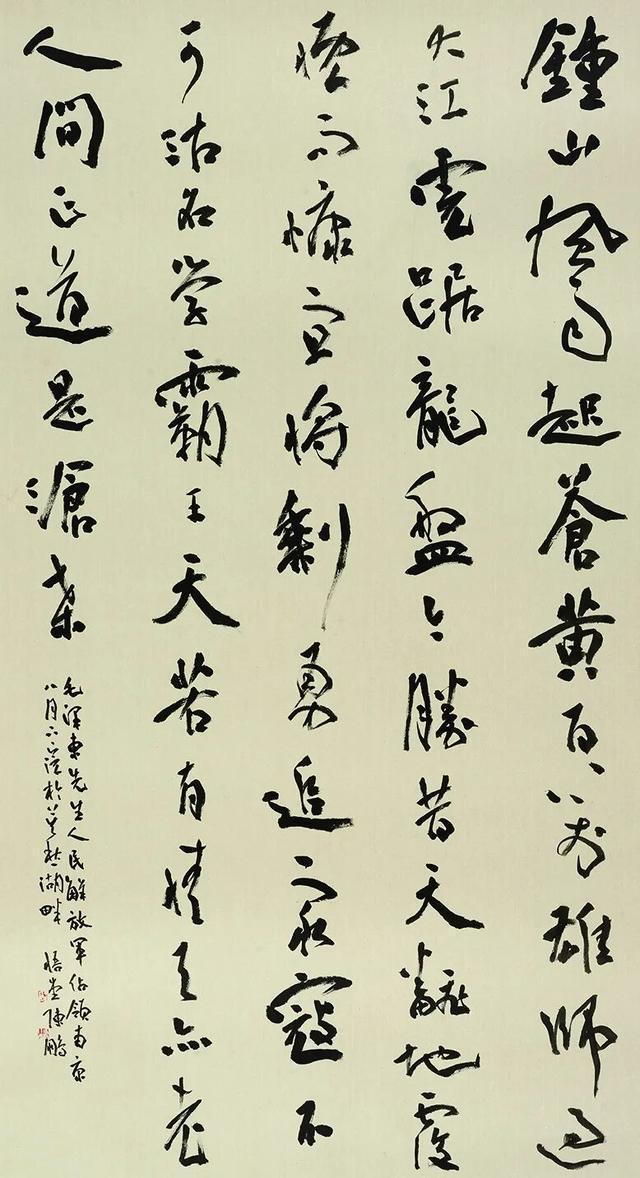 鍾山風雨起蒼黃百万雄師過
大江虎踞龍盤今勝昔天翻地覆
慨而慷宜將剩勇追窮寇不
可沽名学霸王天若有情天亦老
人間正道是滄桑
毛澤東先生人民解放軍佔領南京
八月於莫愁湖畔 悟堂陳鵬